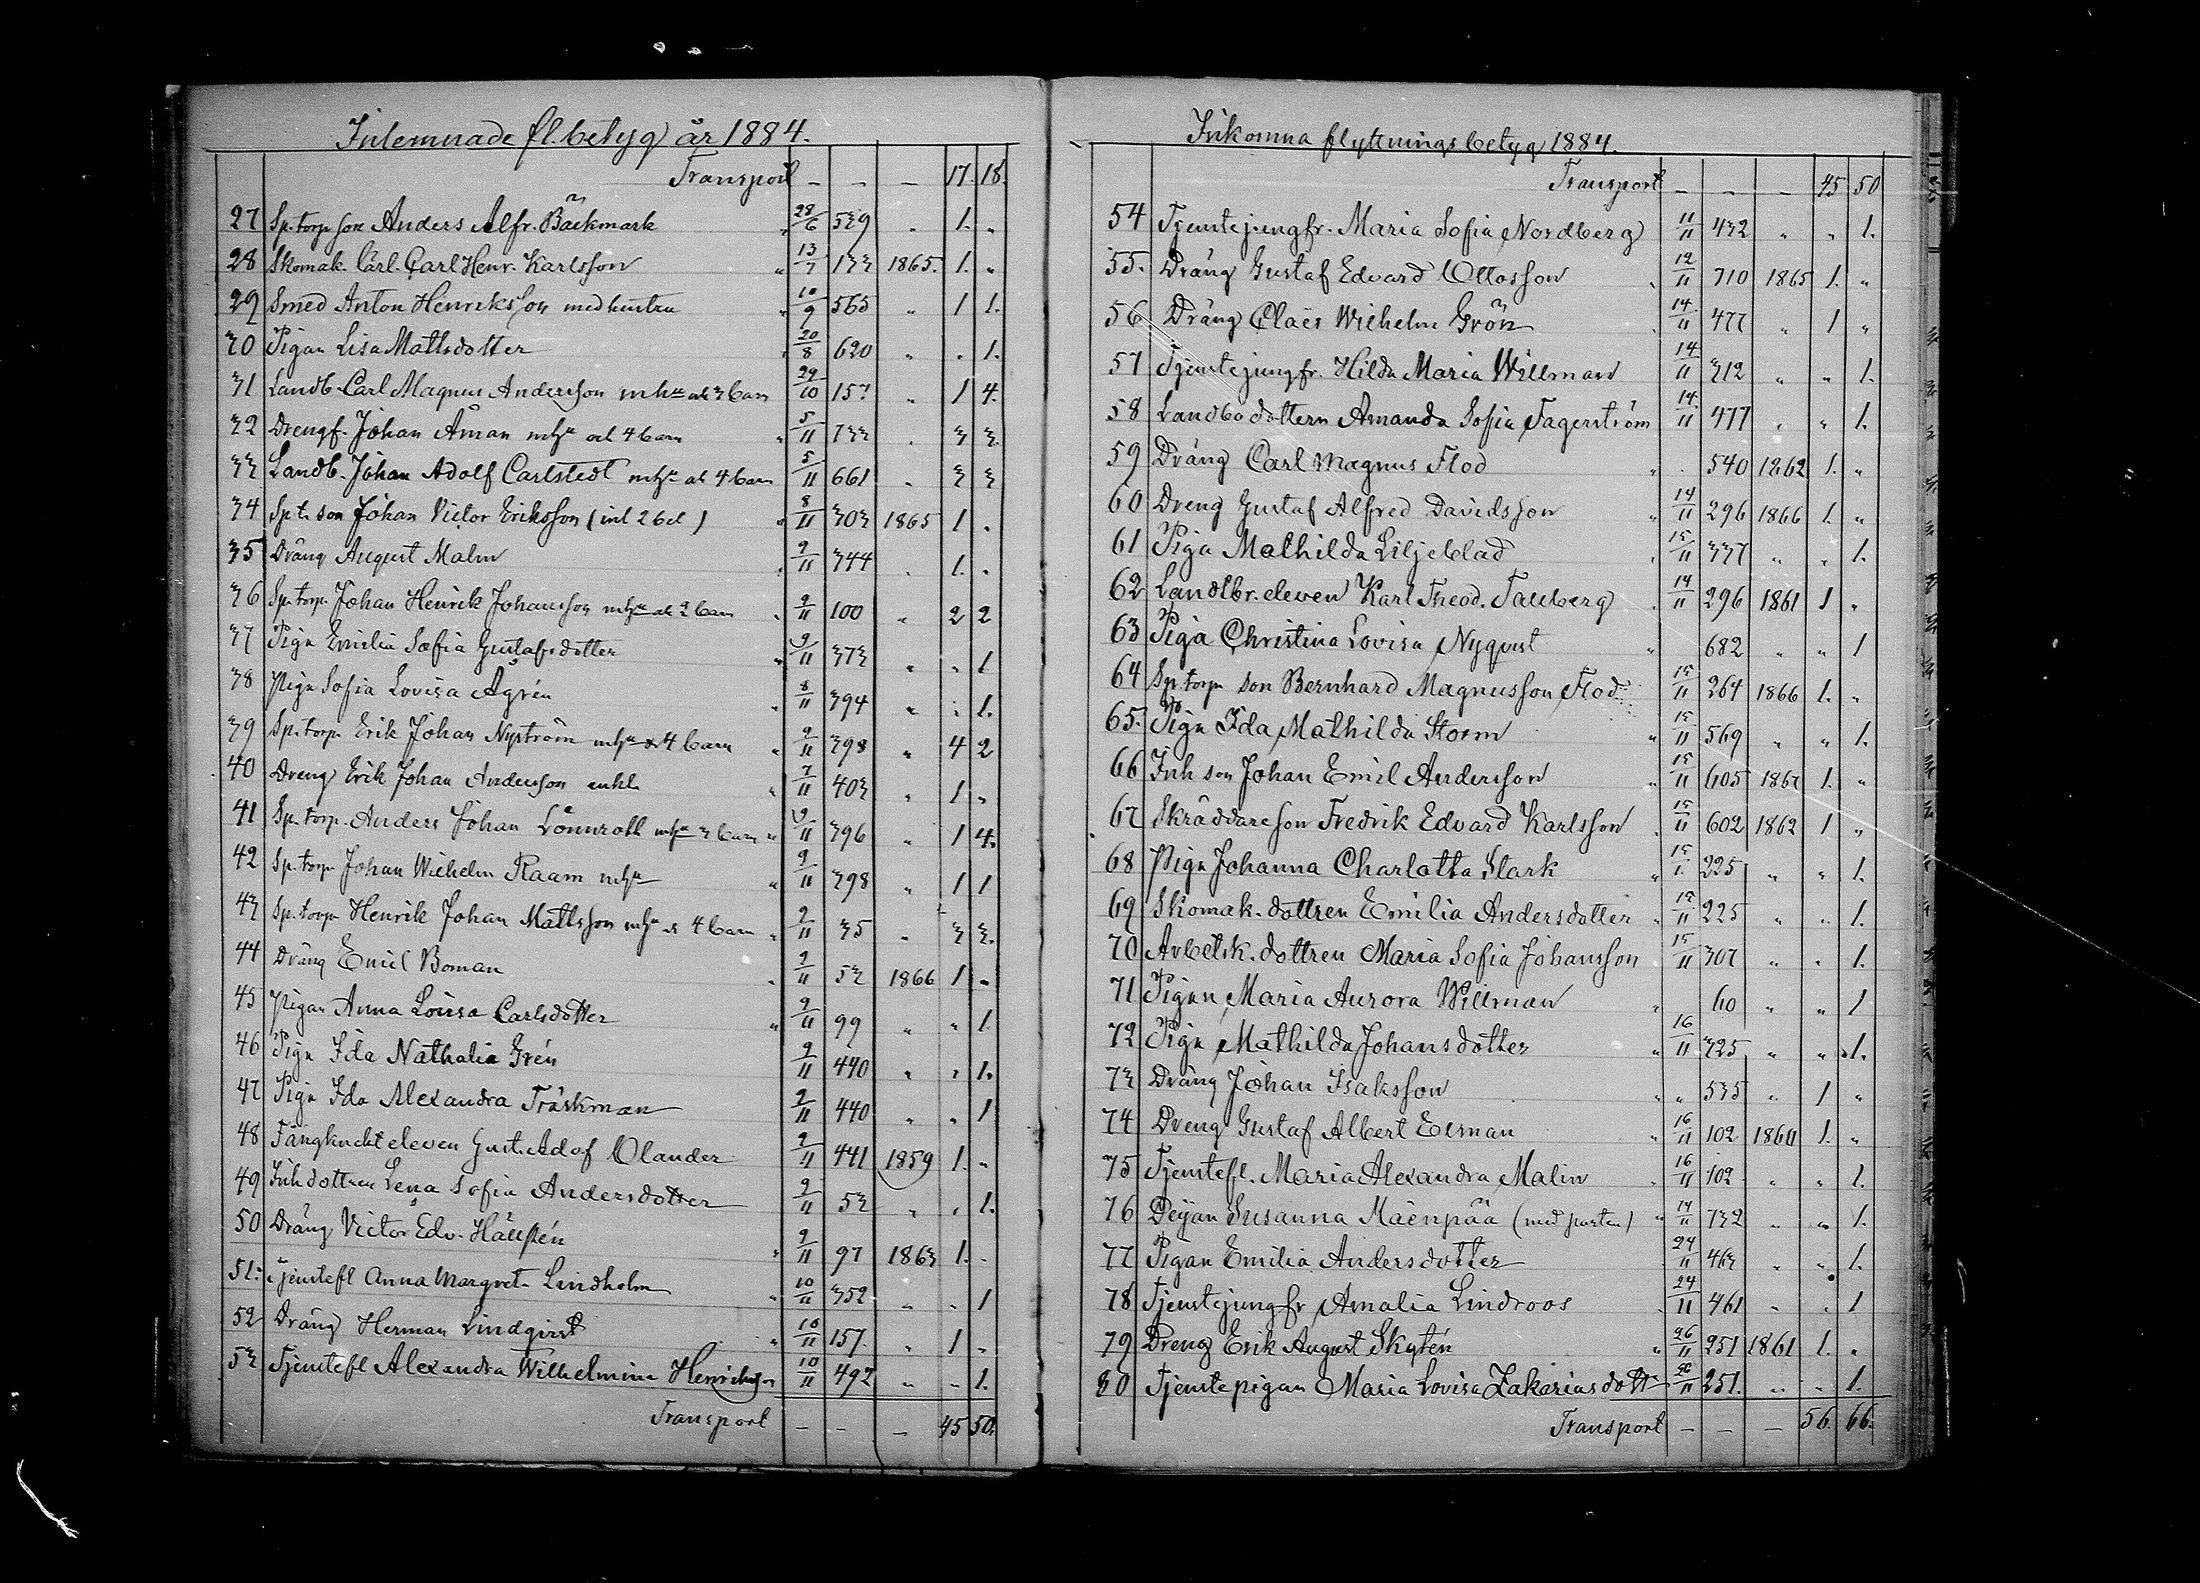 Inlemnade fl.betyg år 1884.
Transport — — — 17. 18.
27 Sp.torp son Anders Alfr. Bäckmark " 28/6 539 " 1. "
28 Skomak. lärl. Carl Henr. Karlsson " 13/7 133 1865. 1. "
29 Smed Anton Henriksson med hustru " 10/9 565 " 1 1.
30 Pigan Lisa Mattsdotter " 20/8 620 " " 1.
31 Landb. Carl Magnus Andersson m hu och 3 barn 29/10 157 " 1 4.
32 Drengf. Johan Åman m hu och 4 barn " 5/11 733 " 3 3.
33 Landb. Johan Adolf Carlstedt m hu och 4 barn 5/11 661 " 3 3
34 Sp.t. son Johan Victor Eriksson (inl 26 ) " 8/11 303 1865 1. "
35 Dräng August Malm " 9/11 344 " 1. "
36 Sp.torp. Johan Henrik Johansson m hu och 2 barn " 9/11 100 " 2 2
37 Pigan Emilia Sofia Gustafsdotter " 9/11 373 " " 1
38 Pigan Sofia Lovisa Ågrén " 8/11 394 " " 1.
39 Sp.torp. Erik Johan Nyström m hu & 4 barn " 9/11 398 " 4 2
40 Dreng Erik Johan Andersson enkl. " 7/11 403 " 1 "
41 Sp.torp. Anders Johan Lönnroth m hu 3 barn " 9/11 396 " 1 4.
42 Sp.torp. Johan Wilhelm Raam m hu " 9/11 398 " 1 1
43 Sp.torp. Henrik Johan Mattsson m hu & 4 barn " 9/11 35 " 3 3.
44 Dräng Emil Boman " 9/11 53 1866 1 "
45 Pigan Anna Lovisa Carlsdotter " 9/11 99 " " 1.
46 Pigan Ida Nathalia Grén 9/11 440 " " 1.
47 Pigan Ida Alexandra Träskman 9/11 440 " " 1
48 Fångknekt eleven Gust. Adof Olander 9/11 441 1859 1. "
49 Inh dottren Lena Sofia Andersdotter 9/11 53 " " 1.
50 Dräng Victor Edv. Hällstén " 9/11 97 1863 1. "
51. Tjenstefl Anna Margreta Lindholm " 10/11 352 " " 1
52 Dräng Herman Lindqvist " 10/11 157. " 1 "
53 Tjenstefl Alexandra Wilhelmina Henriksson 10/11 492 " " 1.
Transport — — — 45 50.
Inkomna flyttningsbetyg 1884.
Transport — — — 45 50
54 Tjenstejungfr. Maria Sofia Nordberg 11/11 432 " " 1.
55. Dräng Gustaf Edvard Ottosson " 12/11 710 1865 1. "
56 Dräng Claës Wilhelm Grön " 14/11 477 " 1 "
57 Tjenstejungfr. Hilda Maria Willman 14/11 312 " " 1.
58 Landbodottern Amanda Sofia Fagerström 14/11 477 " " 1.
59 Dräng Carl Magnus Flod " " 540 1862 1. "
60 Dreng Gustaf Alfred Davidsson " 14/11 296 1866 1. "
61 Piga Mathilda Liljeblad " 15/11 337 " " 1.
62 Landtbr. eleven Karl Theod. Tallberg " 14/11 296 1861 1 "
63 Piga Christina Lovisa Nyqvist " 682 " " 1
64 Sp.torp. son Bernhard Magnusson Flod 15/11 264 1866 1. "
65. Pigan Ida Mathilda Storm " 15/11 569 " " 1.
66 Inh son Johan Emil Andersson " 15/11 605 1867 1. "
67 Skräddareson Fredrik Edvard Karlsson " 15/11 602 1862 1 "
68 Pigan Johanna Charlotta Stark " 15/11 225 " " 1.
69 Skomak. dottren Emilia Andersdotter " 15/11 225 " " 1.
70 Arbetsk. dottren Maria Sofia Johansson 15/11 307 " " 1.
71 Pigan Maria Aurora Willman " 60 " " 1
72 Pigan Mathilda Johansdotter " 16/11 325 " " 1.
73 Dräng Johan Isaksson " " 535 " 1 "
74 Dreng Gustaf Albert Ekman " 16/11 102 1860 1. "
75 Tjenstefl. Maria Alexandra Malin " 16/11 102 " " 1.
76 Deijan Susanna Mäenpää (med pasten) " 14/11 732 " " 1.
77 Pigan Emilia Andersdotter 24/11 463 " " 1.
78 Tjenstejungfr Amalia Lindroos " 24/11 461 " " 1
79 Dreng Erik August Skytén " 26/11 251 1861 1. "
80 Tjenstepigan Maria Lovisa Zakariasdott 26/11 251. " " 1.
Transport — — — 56. 66.